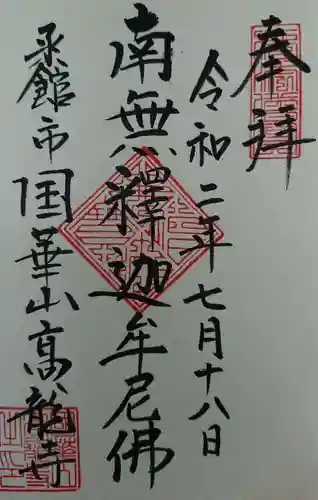 奉拝
令和二年七月十八日
南無釋迦牟尼佛
函館市国華山高龍寺